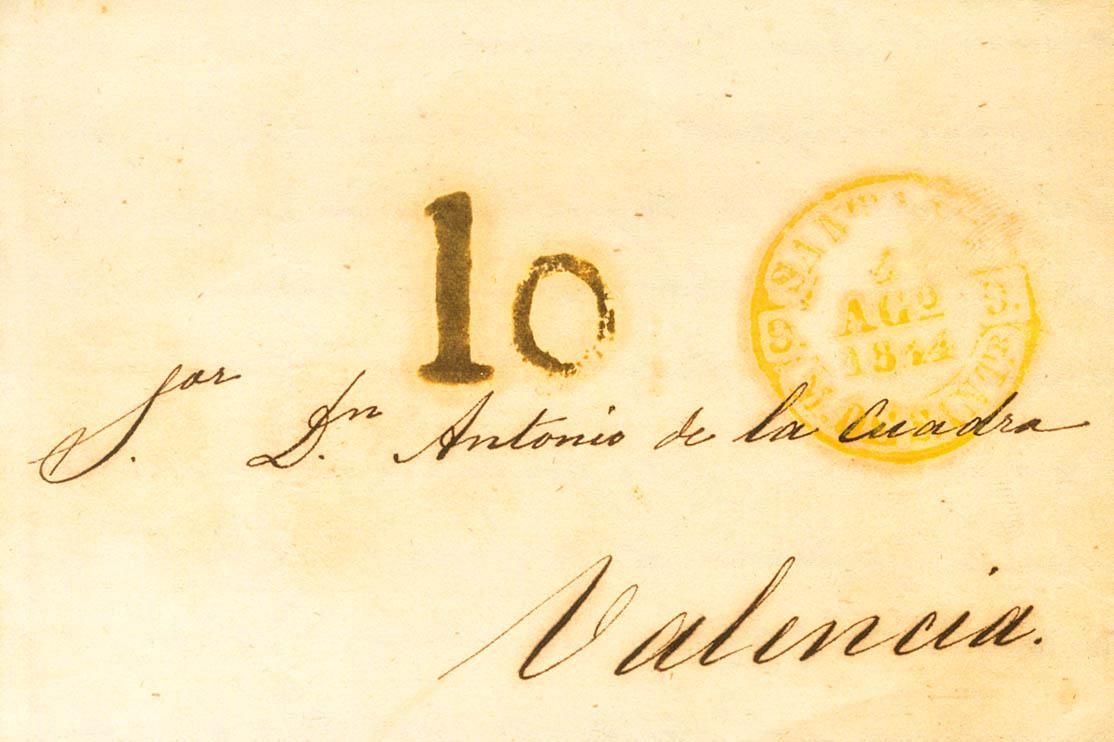 10
4
AGO
1844
Sor Dn Antonio de la Cuadra
Valencia.